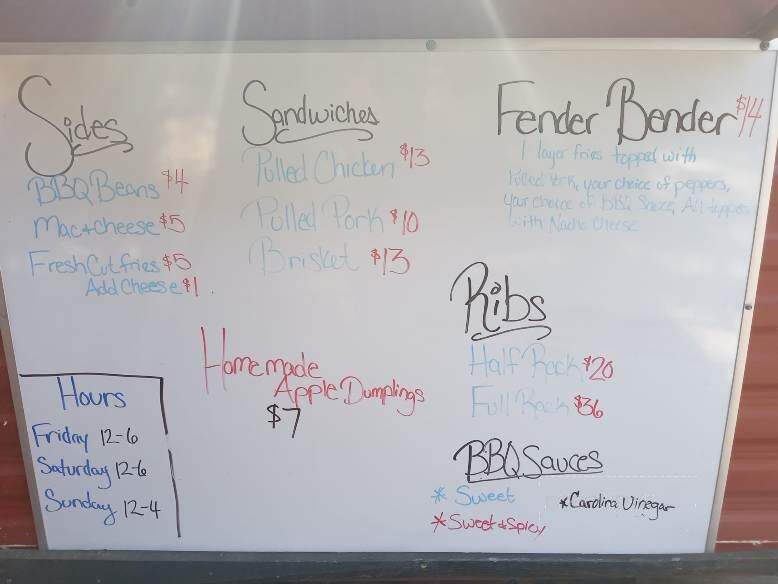 Sides
BBQ Beans $4
Mac + cheese $5
Fresh Cut fries $5
Add Cheese $1
Sandwiches
Pulled Chicken $13
Pulled Pork $10
Brisket $13
Fender Bender $14
1 layer fries topped with
Pulled Pork, your choice of peppers,
your choice of BBQ Sauce, All topped
with Nacho Cheese
Ribs
Half Rack $20
Full Rack $36
Homemade
Apple Dumplings
$7
BBQ Sauces
* Sweet
* Sweet & Spicy
* Carolina Vinegar
Hours
Friday 12-6
Saturday 12-6
Sunday 12-4